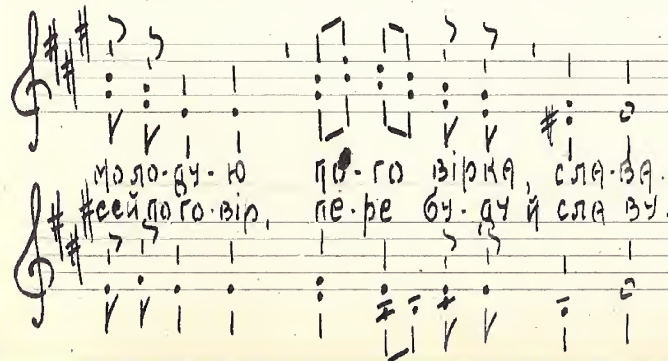 моло-ду-ю по-го вірка, сла-ва.
сей по го-вір, пе-ре бу-ду й сла ву.